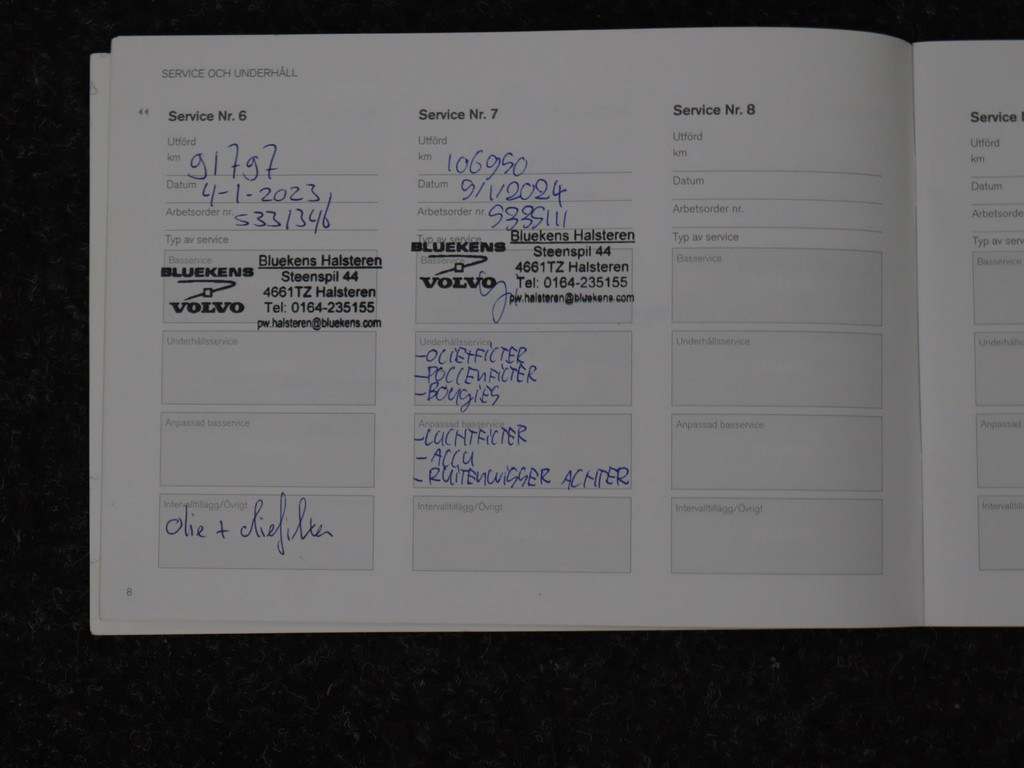 SERVICE OCH UNDERHÅLL
Service Nr. 6
Utförd
km 91797
Datum 4-1-2023
Arbetsorder nr. 5331346
Typ av service
Basservice
BLUEKENS
VOLVO
Bluekens Halsteren
Steenspil 44
4661TZ Halsteren
Tel: 0164-235155
pw.halsteren@bluekens.com
Underhållsservice
Anpassad basservice
Intervalltillägg/Övrigt
olie + oliefilter
Service Nr. 7
Utförd
km 106950
Datum 9/1/2024
Arbetsorder nr. 5385111
Typ av service
Basservice
BLUEKENS
VOLVO
Bluekens Halsteren
Steenspil 44
4661TZ Halsteren
Tel: 0164-235155
pw.halsteren@bluekens.com
Underhållsservice
-OLIE+FILTER
-POLLENFILTER
-BOUGIES
Anpassad basservice
-LUCHTFILTER
-ACCU
-RUITENWISSER ACHTER
Intervalltillägg/Övrigt
Service Nr. 8
Utförd
km
Datum
Arbetsorder nr.
Typ av service
Basservice
Underhållsservice
Anpassad basservice
Intervalltillägg/Övrigt
8
Service
Utförd
km
Datum
Basservice
Anpassad